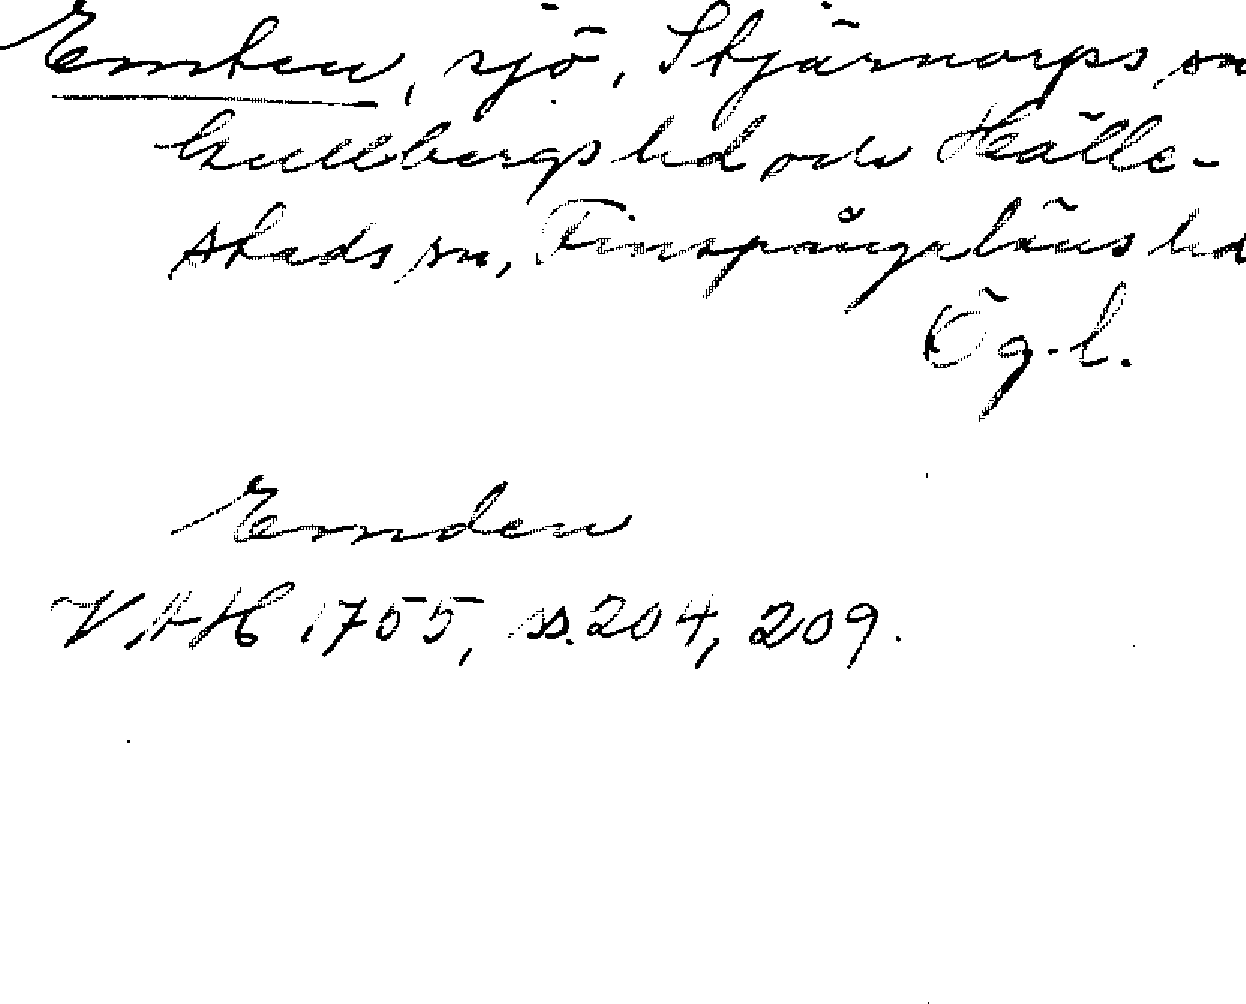 Emten, sjö, Stjärnorps sn
Gullbergs hd och Hälle-
stads sn, Finspångaläns hd
Ög. l.
Emden
VAH 1755, ss. 204, 209.